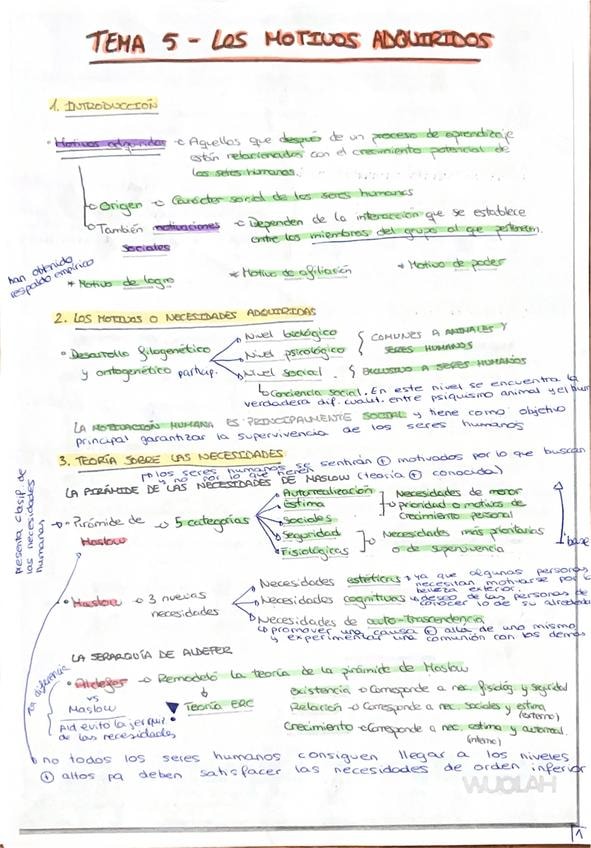 TEMA 5 - LOS MOTIVOS ADQUIRIDOS
1. INTRODUCCIÓN
· Motivos adquiridos → Aquellos que después de un proceso de aprendizaje
están relacionados con el crecimiento potencial de
los seres humanos.
→ Origen → Carácter social de los seres humanos
→ También motivaciones → Dependen de la interacción que se establece
sociales entre los miembros del grupo al que pertenecen.
han obtenido
respaldo empírico
* Motivo de logro * Motivo de afiliación * Motivo de poder
2. LOS MOTIVOS O NECESIDADES ADQUIRIDAS
· Desarrollo filogenético
y ontogenético particip.
Nivel biológico
Nivel psicológico
COMUNES A ANIMALES Y
SERES HUMANOS
Nivel social. EXCLUSIVO A SERES HUMANOS
↳ Conciencia social. En este nivel se encuentra la
verdadera dif. cualit. entre psiquismo animal y el hum
LA MOTIVACIÓN HUMANA ES PRINCIPALMENTE SOCIAL y tiene como objetivo
principal garantizar la supervivencia de los seres humanos
3. TEORÍA SOBRE LAS NECESIDADES
↳ los seres humanos se sentirán ⊕ motivados por lo que buscan
y no por lo que tienen
LA PIRÁMIDE DE LAS NECESIDADES DE MASLOW (teoría ⊕ conocida)
presenta clasif. de
las necesidades
humanas
· Pirámide de → 5 categorías
Maslow
Autorrealización
Estima
Sociales
Necesidades de menor
prioridad o motivos de
crecimiento personal
Seguridad
Fisiológicas
Necesidades más prioritarias
o de supervivencia
base
· Maslow → 3 nuevas
necesidades
Necesidades estéticas → ya que algunas personas
necesitan motivarse por la
belleza exterior.
Necesidades cognitivas → deseo de las personas de
conocer lo de su alrededor
Necesidades de auto-trascendencia
↳ promover una causa ⊕ allá de uno mismo
y experimentar una comunión con los demás
LA JERARQUÍA DE ALDEFER
· Aldefer → Remodeló la teoría de la pirámide de Maslow
↓
Teoría ERC
Existencia → Corresponde a nec. fisiológ y seguridad
Relación → Corresponde a nec. sociales y estima
(externo)
Crecimiento → Corresponde a nec. estima y autorreal.
(interno)
diferencia
vs
Maslow
Ald. evitó la jerqui.
de las necesidades
no todos los seres humanos consiguen llegar a los niveles
⊕ altos pq deben satisfacer las necesidades de orden inferior
WUOLAH
1